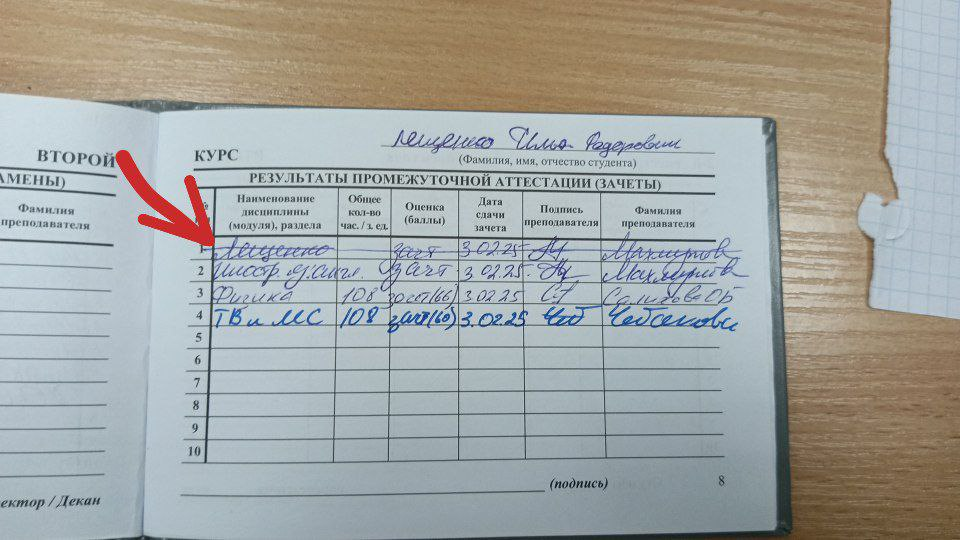 Лещенко Илья Федорович
ВТОРОЙ
КУРС
(Фамилия, имя, отчество студента)
АМЕНЫ)
РЕЗУЛЬТАТЫ ПРОМЕЖУТОЧНОЙ АТТЕСТАЦИИ (ЗАЧЕТЫ)
Фамилия преподавателя
№ Наименование дисциплины (модуля), раздела Общее кол-во час. / з. ед. Оценка (баллы) Дата сдачи зачета Подпись преподавателя Фамилия преподавателя
1 Лещенко зачт 3.02.25
2 зачт. 3.02.25.
3 Физика 108 зачет(66) 3.02.25
4 ТВ и МС 108 зачт(60) 3.02.25
5
6
7
8
9
10
ектор / Декан
(подпись)
8